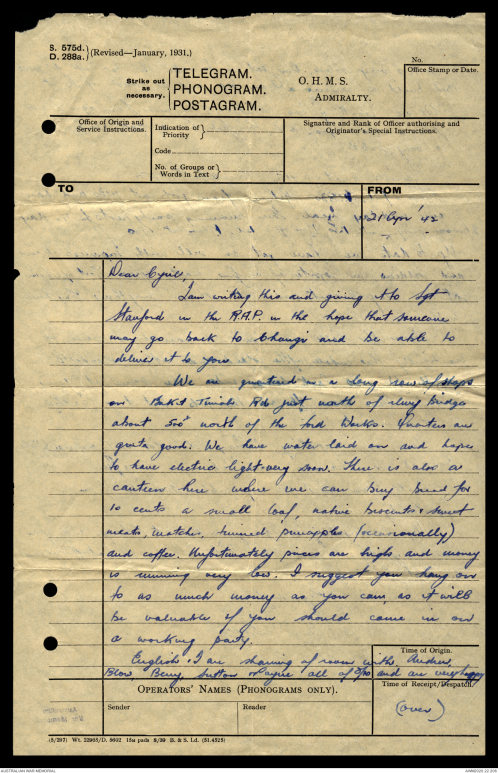 S. 575d.
D. 288a.
(Revised—January, 1931.)
Strike out
as
necessary.
TELEGRAM.
PHONOGRAM.
POSTAGRAM.
O. H. M. S.
ADMIRALTY.
No.
Office Stamp or Date.
Office of Origin and
Service Instructions.
Indication of
Priority
Code
No. of Groups or
Words in Text
Signature and Rank of Officer authorising and
Originator's Special Instructions.
TO
FROM
21 Apr '42
Dear Cyril,
I am writing this and giving it to Sgt
Stanford in the R.A.P. in the hope that someone
may go back to Changi and be able to
deliver it to you
We are quartered in a long row of shops
on Bukit Timah Rd just north of
about 500ˣ north of the Ford Works. Quarters are
quite good. We have water laid on and hope
to have electric light very soon. There is also a
canteen here where we can buy bread for
10 cents a small loaf, native biscuits, sweet
meats, matches, tinned pineapples (occasionally)
and coffee. Unfortunately prices are high and money
is running very low. I suggest you hang on
to as much money as you can, as it will
be valuable if you should come in on
a working party.
English & I are sharing a room with Andrew,
Blow, Berry, Sutton all of and are very happy
Time of Origin.
OPERATORS' NAMES (PHONOGRAMS ONLY).
Time of Receipt/Despatch
Sender
Reader
(over)
(5/297) Wt. 22965/D. 5602 15m pads 8/39 B. & S. Ld. (51.4525)
AUSTRALIAN WAR MEMORIAL